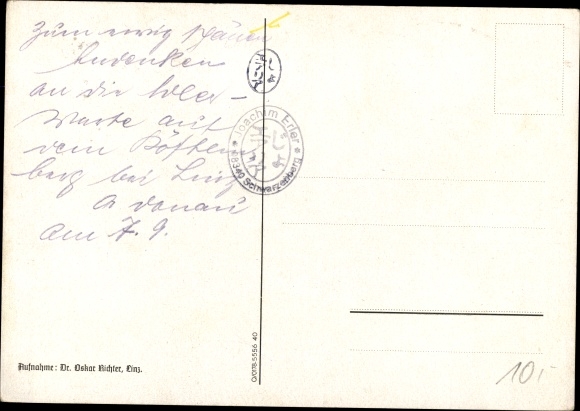 Zum ewig schönen
Andenken
an die
Warte auf
dem
berg bei Linz
a Donau
am 7. 9.
* Joachim Erler *
08340 Schwarzenberg
Aufnahme: Dr. Oskar Richter, Linz.
O/0178-5556 40
10,-